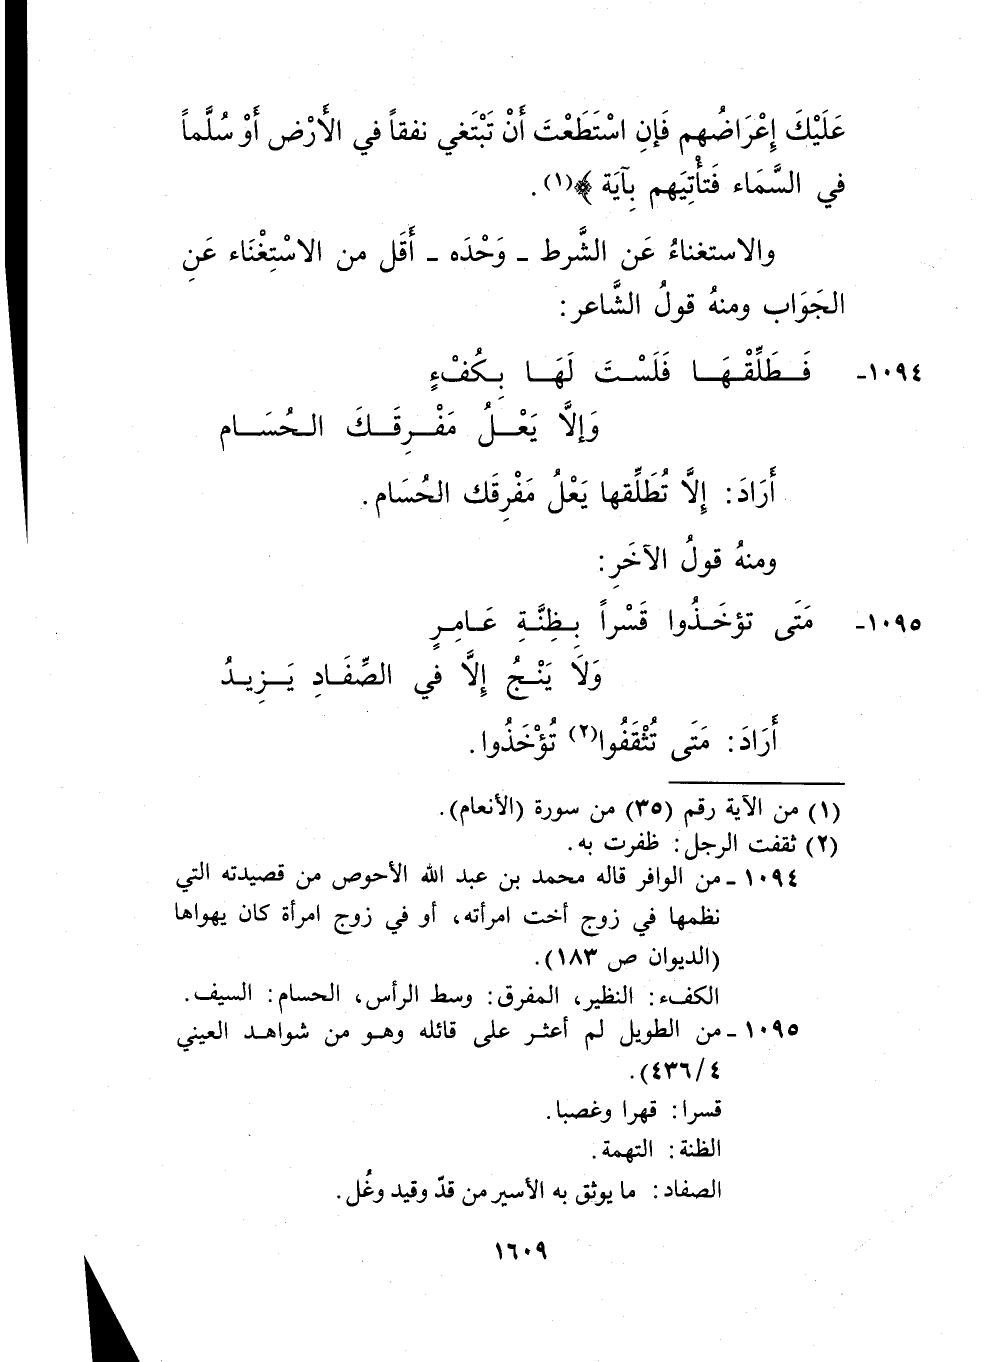 عَلَيْكَ إِعْرَاضُهم فَإنِ اسْتَطَعْتَ أَنْ تَبْتَغي نفقاً في الأَرْض أَوْ سُلَّماً
في السَّمَاء فَتأْتِيَهم بِآيَة ﴾(١).
والاستغناءُ عَن الشَّرط ـ وَحْدَه ـ أَقَل من الاسْتِغْنَاء عَنِ
الجَوَاب ومنهُ قولُ الشَّاعر:
١٠٩٤ـ فَـطَلِّقْـهَـا فَلَسْـتَ لَهَـا بِـكُفْءٍ
وَإلاَّ يَعْـلُ مَفْـرِقَـكَ الـحُسَـام
أَرَادَ: إِلاَّ تُطَلِّقها يَعْلُ مَفْرِقَك الحُسَام.
ومنهُ قولُ الآخَرِ:
١٠٩٥ـ مَتَى تؤخَـذُوا قَسْراً بِـظِنَّـةِ عَـامِـرٍ
وَلاَ يَنْـجُ إِلاَّ في الصِّفَـادِ يَـزِيـدُ
أَرَادَ: مَتَى تُثْقَفُوا(٢) تُؤْخَذُوا.
(١) من الآية رقم (٣٥) من سورة (الأنعام).
(٢) ثقفت الرجل: ظفرت به.
١٠٩٤ ـ من الوافر قاله محمد بن عبد الله الأحوص من قصيدته التي
نظمها في زوج أخت امرأته، أو في زوج امرأة كان يهواها
(الديوان ص ١٨٣).
الكفء: النظير، المفرق: وسط الرأس، الحسام: السيف.
١٠٩٥ ـ من الطويل لم أعثـر على قائله وهـو من شواهـد العيني
٤/٤٣٦).
قسرا: قهرا وغصبا.
الظنة: التهمة.
الصفاد: ما يوثق به الأسير من قدّ وقيد وغُل.
١٦٠٩